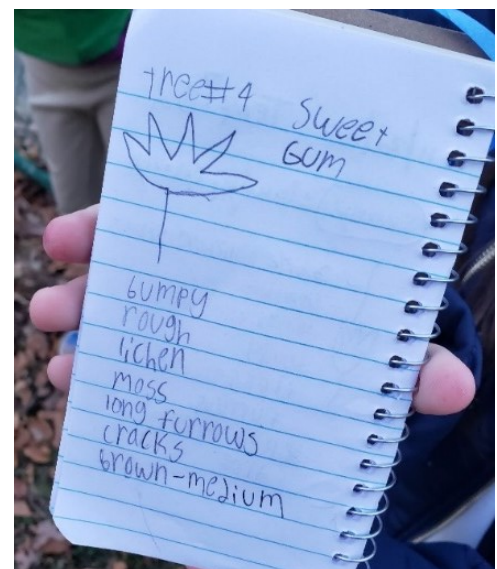 tree#4
Sweet
Gum
bumpy
rough
lichen
moss
long furrows
cracks
brown-medium